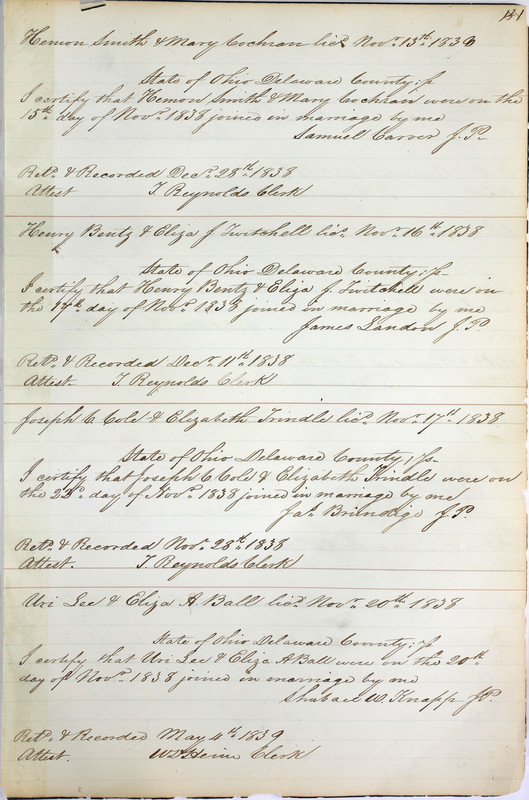 141
Hemon Smith & Mary Cochran licd. Novr. 13th. 1838
State of Ohio Delaware County; ss
I certify that Hemon Smith & Mary Cochran were on the
15th day of Novr. 1838 joined in marriage by me
Samuel Carver J.P.
Retd. & Recorded Decr. 28th. 1838
Attest T Reynolds Clerk
Henry Bentz & Eliza J Twitchell licd. Novr. 16th. 1838
State of Ohio Delaware County; ss
I certify that Henry Bentz & Eliza J. Twitchell were on
the 17th. day of Novr. 1838 joined in marriage by me
James Landon J.P.
Retd. & Recorded Decr. 11th. 1838
Attest. T Reynolds Clerk
Joseph C Cole & Elizabeth Trindle licd. Novr. 17th. 1838.
State of Ohio Delaware County; ss.
I certify that Joseph C Cole & Elizabeth Trindle were on
the 22d. day of Novr. 1838 joined in marriage by me
Brundige J.P.
Retd. & Recorded Novr. 28th. 1838
Attest. T Reynolds Clerk
Uri Lee & Eliza A. Ball licd. Novr. 20th. 1838
State of Ohio Delaware County; ss
I certify that Uri Lee & Eliza A Ball were on the 20th.
day of Novr. 1838 joined in marriage by me
Shubael W. Knapp JP.
Retd. & Recorded May 4th. 1839
Attest. Clerk